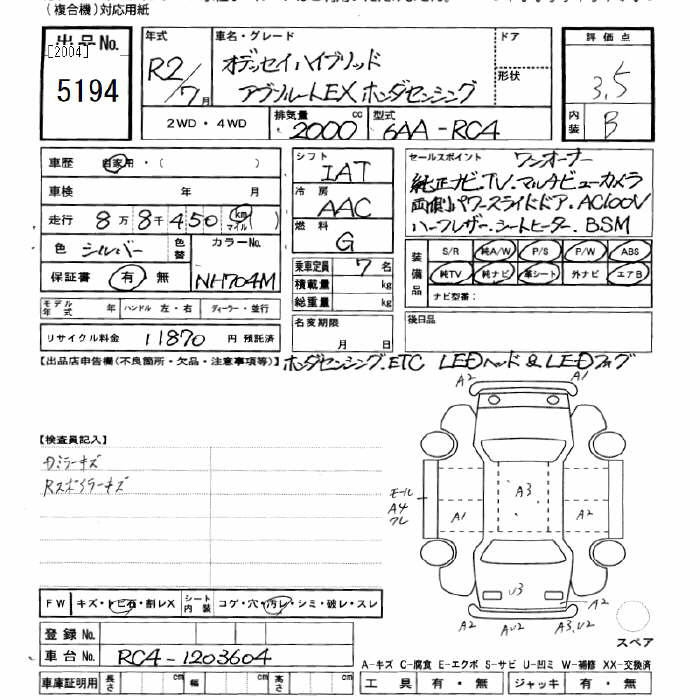 (複合機)対応用紙
出品No.
[2004]
5194
年式
R2/7月
車名・グレード
オデッセイハイブリッド
アブソルートEX ホンダセンシング
ドア
形状
2WD・4WD
排気量
2000cc
型式
6AA-RC4
評価点
3.5
内装
B
車歴
自家用・( )
車検 年 月
走行 8万8千450 km マイル
色 シルバー 色替
カラーNo.
NH704M
保証書 有 無
モデル年式 年 ハンドル 左・右 ディーラー・並行
リサイクル料金 11870 円 預託済
シフト
IAT
冷房
AAC
燃料
G
乗車定員 7名
積載量 kg
総重量 kg
名変期限
月 日
セールスポイント ワンオーナー
純正ナビ.TV.マルチビューカメラ
両側パワースライドドア.AC100V
ハーフレザー.シートヒーター.BSM
装備品
S/R 純A/W P/S P/W ABS
純TV 純ナビ 革シート 外ナビ エアB
ナビ型番:
後日品
【出品店申告欄(不良箇所・欠品・注意事項等)】ホンダセンシング.ETC LEDヘッド&LEDフォグ
【検査員記入】
Rスポイラーキズ
A2 A1
モール
A4
A1 A3 A2
U3
A2
A2 AU2 A3,U2
スペア
FW キズ・トビ石・割レX シート内装 コゲ・穴・汚レ・シミ・破レ・スレ
登録No.
車台No. RC4-1203604
車庫証明用 長さ cm 幅 cm 高さ cm
A-キズ C-腐食 E-エクボ S-サビ U-凹ミ W-補修 XX-交換済
工具 有・無 ジャッキ 有・無